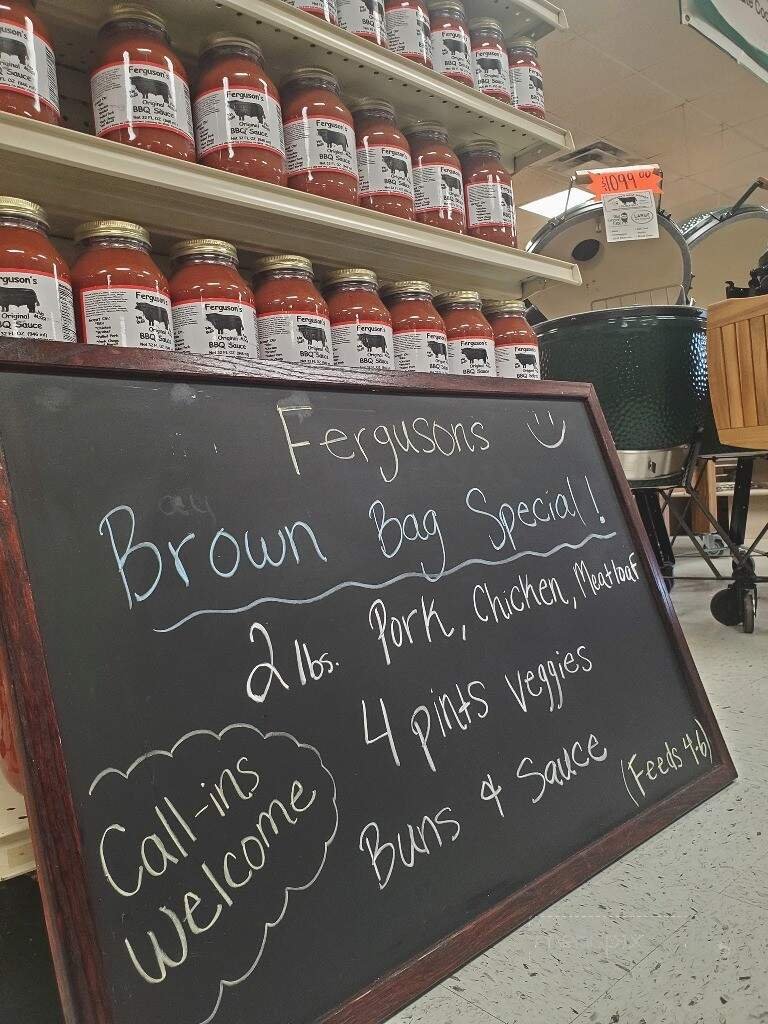 Ferguson's
Original
BBQ Sauce
$1099.00
Fergusons
Brown Bag Special!
2 lbs. Pork, Chicken, Meatloaf
4 pints veggies
Buns & Sauce
(Feeds 4-6)
Call-ins
Welcome